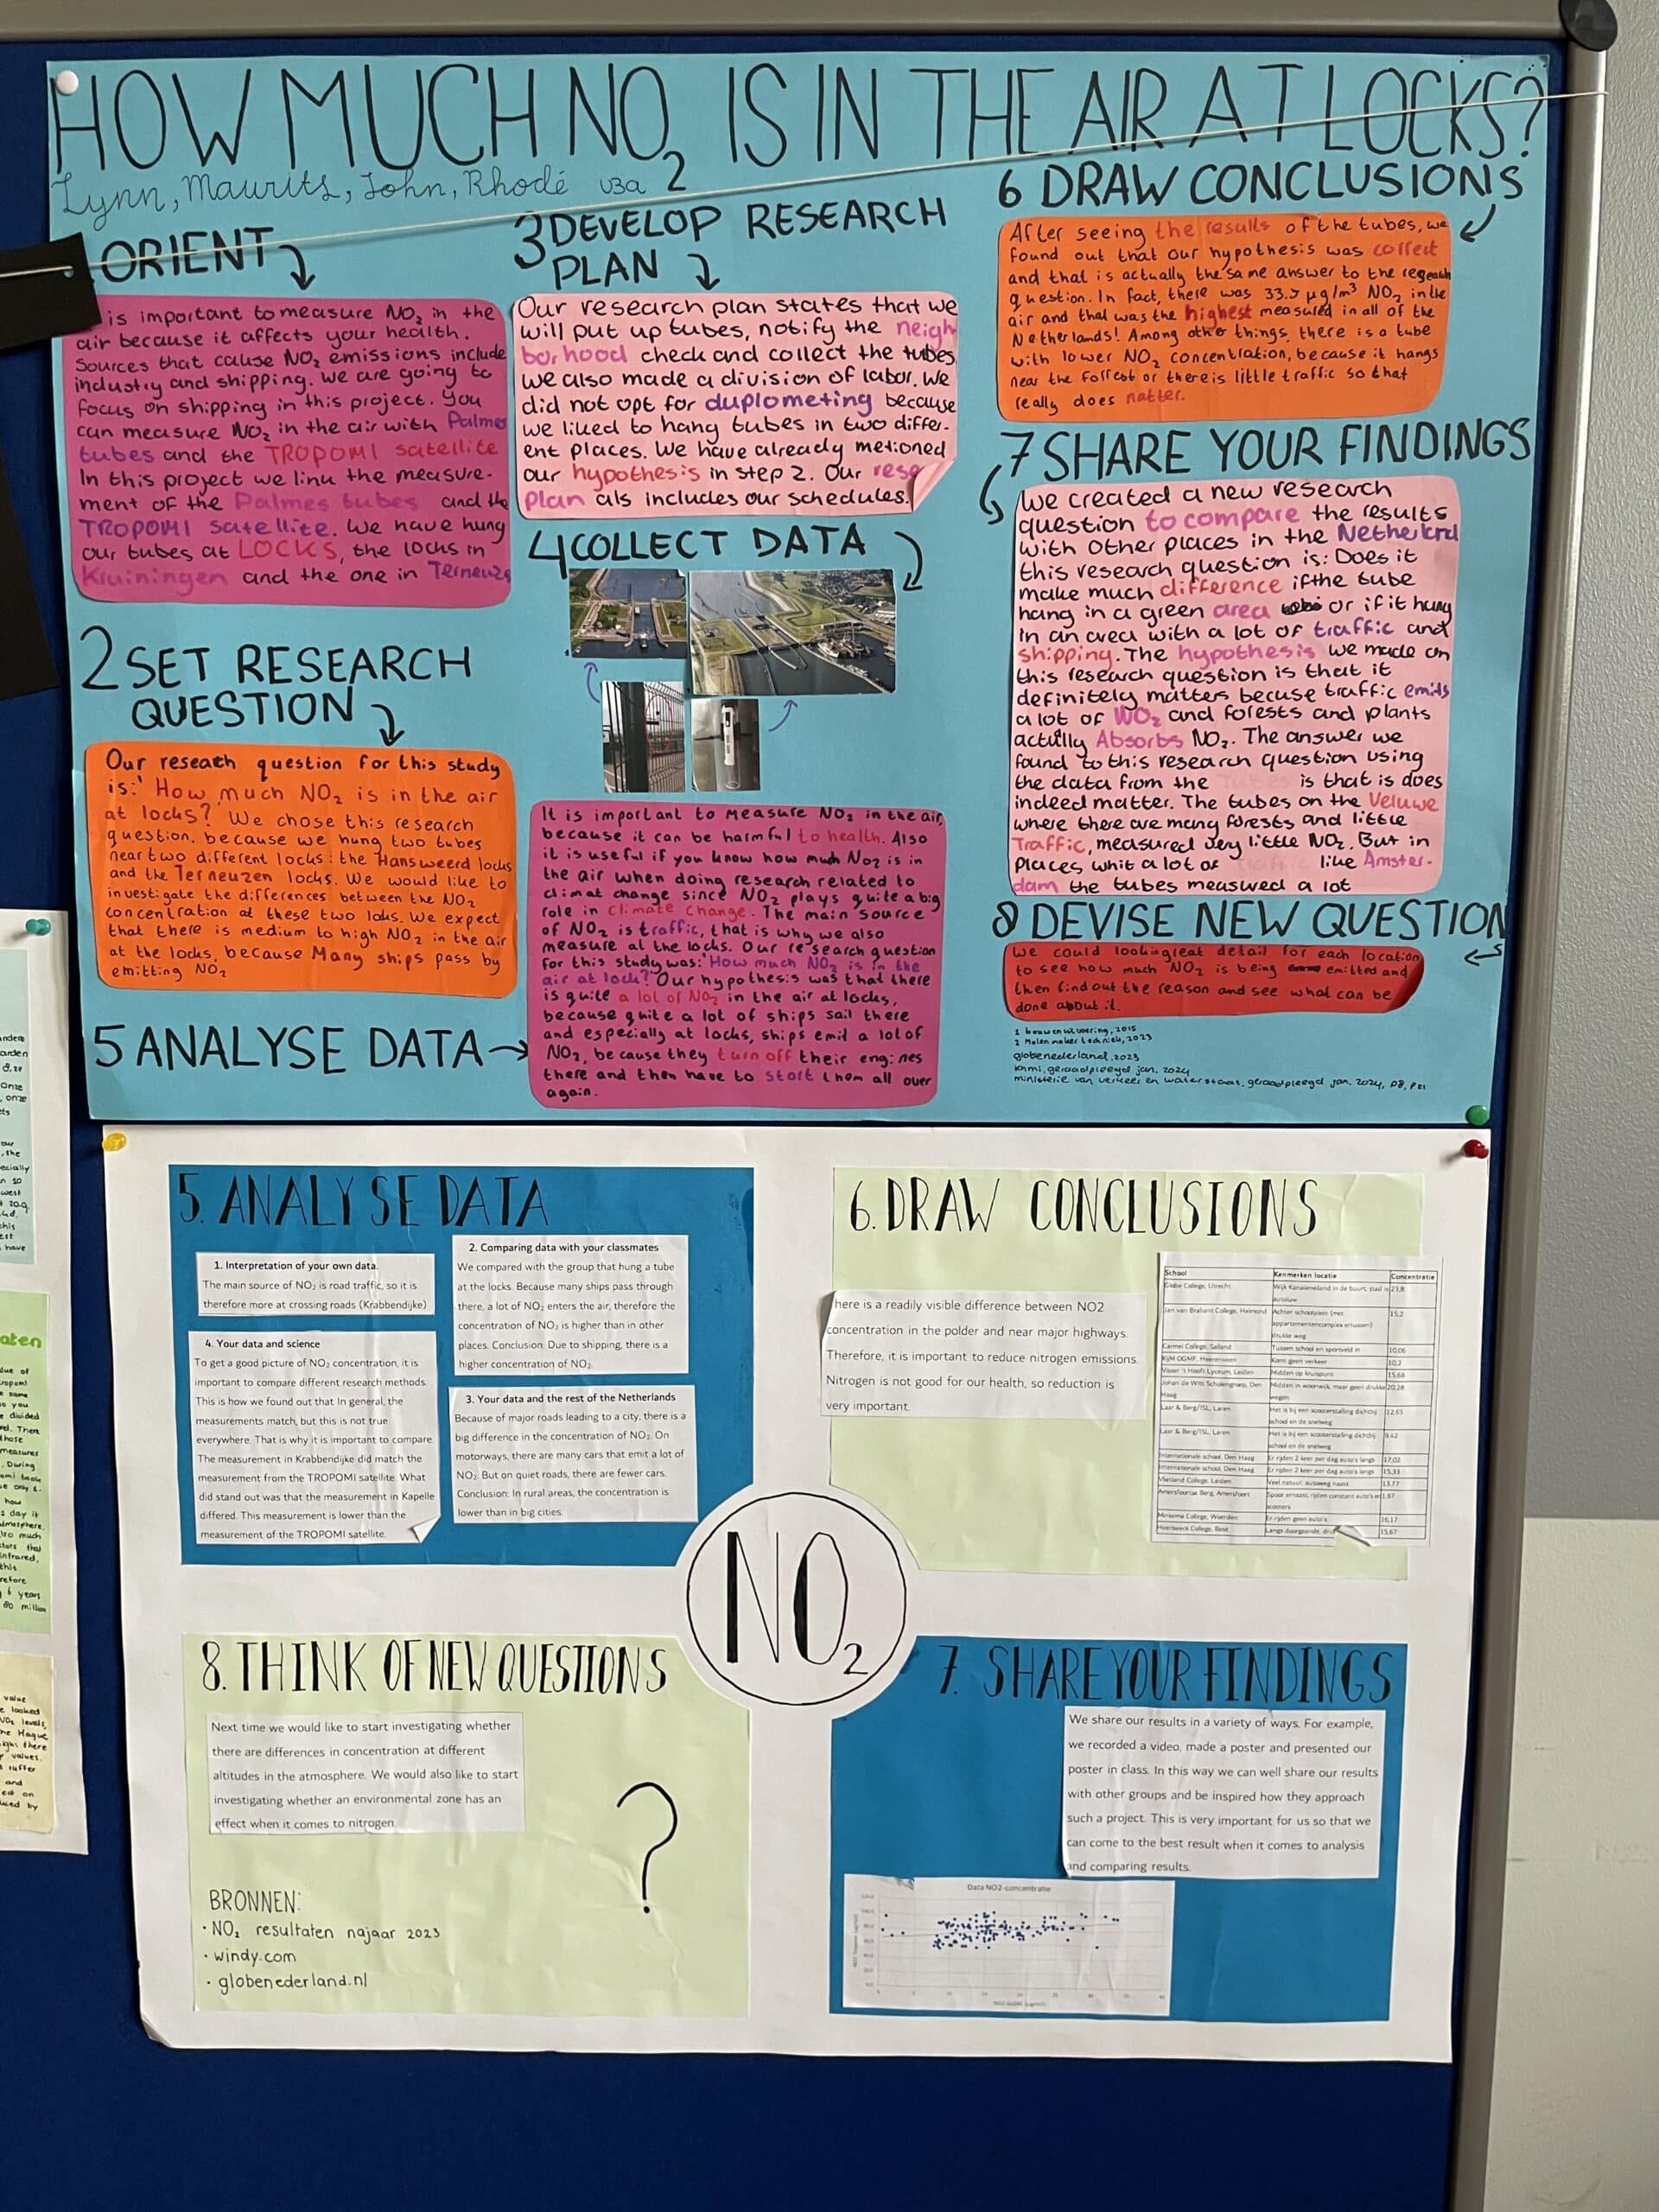 HOW MUCH NO2 IS IN THE AIR AT LOCKS?
Lynn, Maurits, John, Rhodé v3a
ORIENT
is important to measure NO2 in the
air because it affects your health.
Sources that cause NO2 emissions include
industry and shipping. We are going to
focus on shipping in this project. You
can measure NO2 in the air with Palmes
tubes and the TROPOMI satellite
In this project we link the measure-
ment of the Palmes tubes and the
TROPOMI satellite. We have hung
our tubes at LOCKS, the locks in
Kruiningen and the one in Terneuze
2 SET RESEARCH
QUESTION
Our reseach question for this study
is: 'How much NO2 is in the air
at locks? We chose this research
question, because we hung two tubes
near two different locks: the Hansweerd locks
and the Terneuzen locks. We would like to
investigate the differences between the NO2
concentration at these two loks. We expect
that there is medium to high NO2 in the air
at the locks, because Many ships pass by
emitting NO2
3 DEVELOP RESEARCH
PLAN
Our research plan states that we
will put up tubes, notify the neigh
borhood check and collect the tubes.
we also made a division of labor. We
did not opt for duplometing because
we liked to hang tubes in two differ-
ent places. We have already metioned
our hypothesis in step 2. Our rese
plan als includes our schedules.
4 COLLECT DATA
5 ANALYSE DATA
It is important to measure NO2 in the air,
because it can be harmful to health. Also
it is useful if you know how much NO2 is in
the air when doing research related to
climat change since NO2 plays quite a big
role in climate change. The main source
of NO2 is traffic, that is why we also
measure at the locks. Our research question
for this study was: 'How much NO2 is in the
air at lock? Our hypothesis was that there
is quite a lot of NO2 in the air at locks,
because quite a lot of ships sail there
and especially at locks, ships emit a lot of
NO2, because they turn off their engines
there and then have to start them all over
again.
6 DRAW CONCLUSIONS
After seeing the results of the tubes, we
found out that our hypothesis was correct
and that is actually the same answer to the
question. In fact, there was µg/m³ NO2 in the
air and that was the highest measured in all of the
Netherlands! Among other things, there is a tube
with lower NO2 concentration, because it hangs
near the forrest or there is little traffic so that
really does natter.
7 SHARE YOUR FINDINGS
We created a new research
question to compare the results
with other places in the Netherlnd
this research question is: Does it
make much difference if the tube
hang in a green area or if it hung
in an area with a lot of traffic and
shipping. The hypothesis we made on
this research question is that it
definitely matters becuse traffic emits
a lot of NO2 and forests and plants
actully Absorbs NO2. The answer we
found to this research question using
the data from the is that is does
indeed matter. The tubes on the Veluwe
where there are many forests and little
Traffic, measured very little NO2. But in
places whit a lot of like Amster-
dam the tubes measured a lot
8 DEVISE NEW QUESTION
We could look in great detail for each location
to see how much NO2 is being emitted and
then find out the reason and see what can be
done about it.
1 bouwen uitvoering, 2015
2 Molenmaker techniek, 2023
globenederland, 2023
knmi, geraadpleegd jan. 2024
ministerie van verkeer en waterstaat, geraadpleegd jan. 2024
5. ANALYSE DATA
1. Interpretation of your own data.
The main source of NO2 is road traffic, so it is
therefore more at crossing roads (Krabbendijke)
4. Your data and science
To get a good picture of NO2 concentration, it is
important to compare different research methods.
This is how we found out that In general, the
measurements match, but this is not true
everywhere. That is why it is important to compare.
The measurement in Krabbendijke did match the
measurement from the TROPOMI satellite. What
did stand out was that the measurement in Kapelle
differed. This measurement is lower than the
measurement of the TROPOMI satellite.
2. Comparing data with your classmates
We compared with the group that hung a tube
at the locks. Because many ships pass through
there, a lot of NO2 enters the air, therefore the
concentration of NO2 is higher than in other
places. Conclusion: Due to shipping, there is a
higher concentration of NO2.
3. Your data and the rest of the Netherlands
Because of major roads leading to a city, there is a
big difference in the concentration of NO2. On
motorways, there are many cars that emit a lot of
NO2. But on quiet roads, there are fewer cars.
Conclusion: In rural areas, the concentration is
lower than in big cities.
6. DRAW CONCLUSIONS
here is a readily visible difference between NO2
concentration in the polder and near major highways.
Therefore, it is important to reduce nitrogen emissions.
Nitrogen is not good for our health, so reduction is
very important.
School Kenmerken locatie Concentratie
Globe College, Utrecht Wijk Kanaleneiland in de buurt, stad
Jan van Brabant College, Helmond Achter schoolplein (met 15,2
drukke weg
Carmel College, Salland Tussen school en sportveld in 10,06
Komt geen verkeer 10,2
Visser 't Hooft Lyceum, Leiden Midden op kruispunt 15,68
Johan de Witt Scholengroep, Den Haag Midden in woonwijk, maar geen drukke wegen 20,28
Laar & Berg/ISL, Laren Het is bij een scooterstalling dichtbij school en de snelweg 12,65
Laar & Berg/ISL, Laren Het is bij een scooterstalling dichtbij school en de snelweg 9,42
Internationale school, Den Haag Er rijden 2 keer per dag auto's langs 17,02
Internationale school, Den Haag Er rijden 2 keer per dag auto's langs 15,33
Vlietland College, Leiden Veel natuur, autoweg naast 13,77
Amersfoortse Berg, Amersfoort
Minkema College, Woerden Er rijden geen auto's 16,17
Heerbeeck College, Best 15,67
NO2
8. THINK OF NEW QUESTIONS
Next time we would like to start investigating whether
there are differences in concentration at different
altitudes in the atmosphere. We would also like to start
investigating whether an environmental zone has an
effect when it comes to nitrogen.
?
BRONNEN:
· NO2 resultaten najaar 2023
· windy.com
· globenederland.nl
7. SHARE YOUR FINDINGS
We share our results in a variety of ways. For example,
we recorded a video, made a poster and presented our
poster in class. In this way we can well share our results
with other groups and be inspired how they approach
such a project. This is very important for us so that we
can come to the best result when it comes to analysis
and comparing results.
Data NO2-concentratie